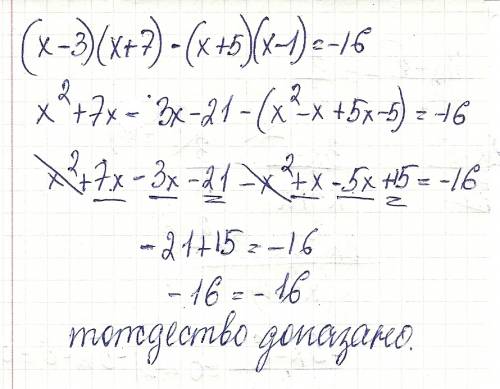 (x-3)(x+7)-(x+5)(x-1)=-16
x²+7x-3x-21-(x²-x+5x-5)=-16
x²+7x-3x-21-x²+x-5x+15=-16
-21+15=-16
-16=-16
тождество доказано.